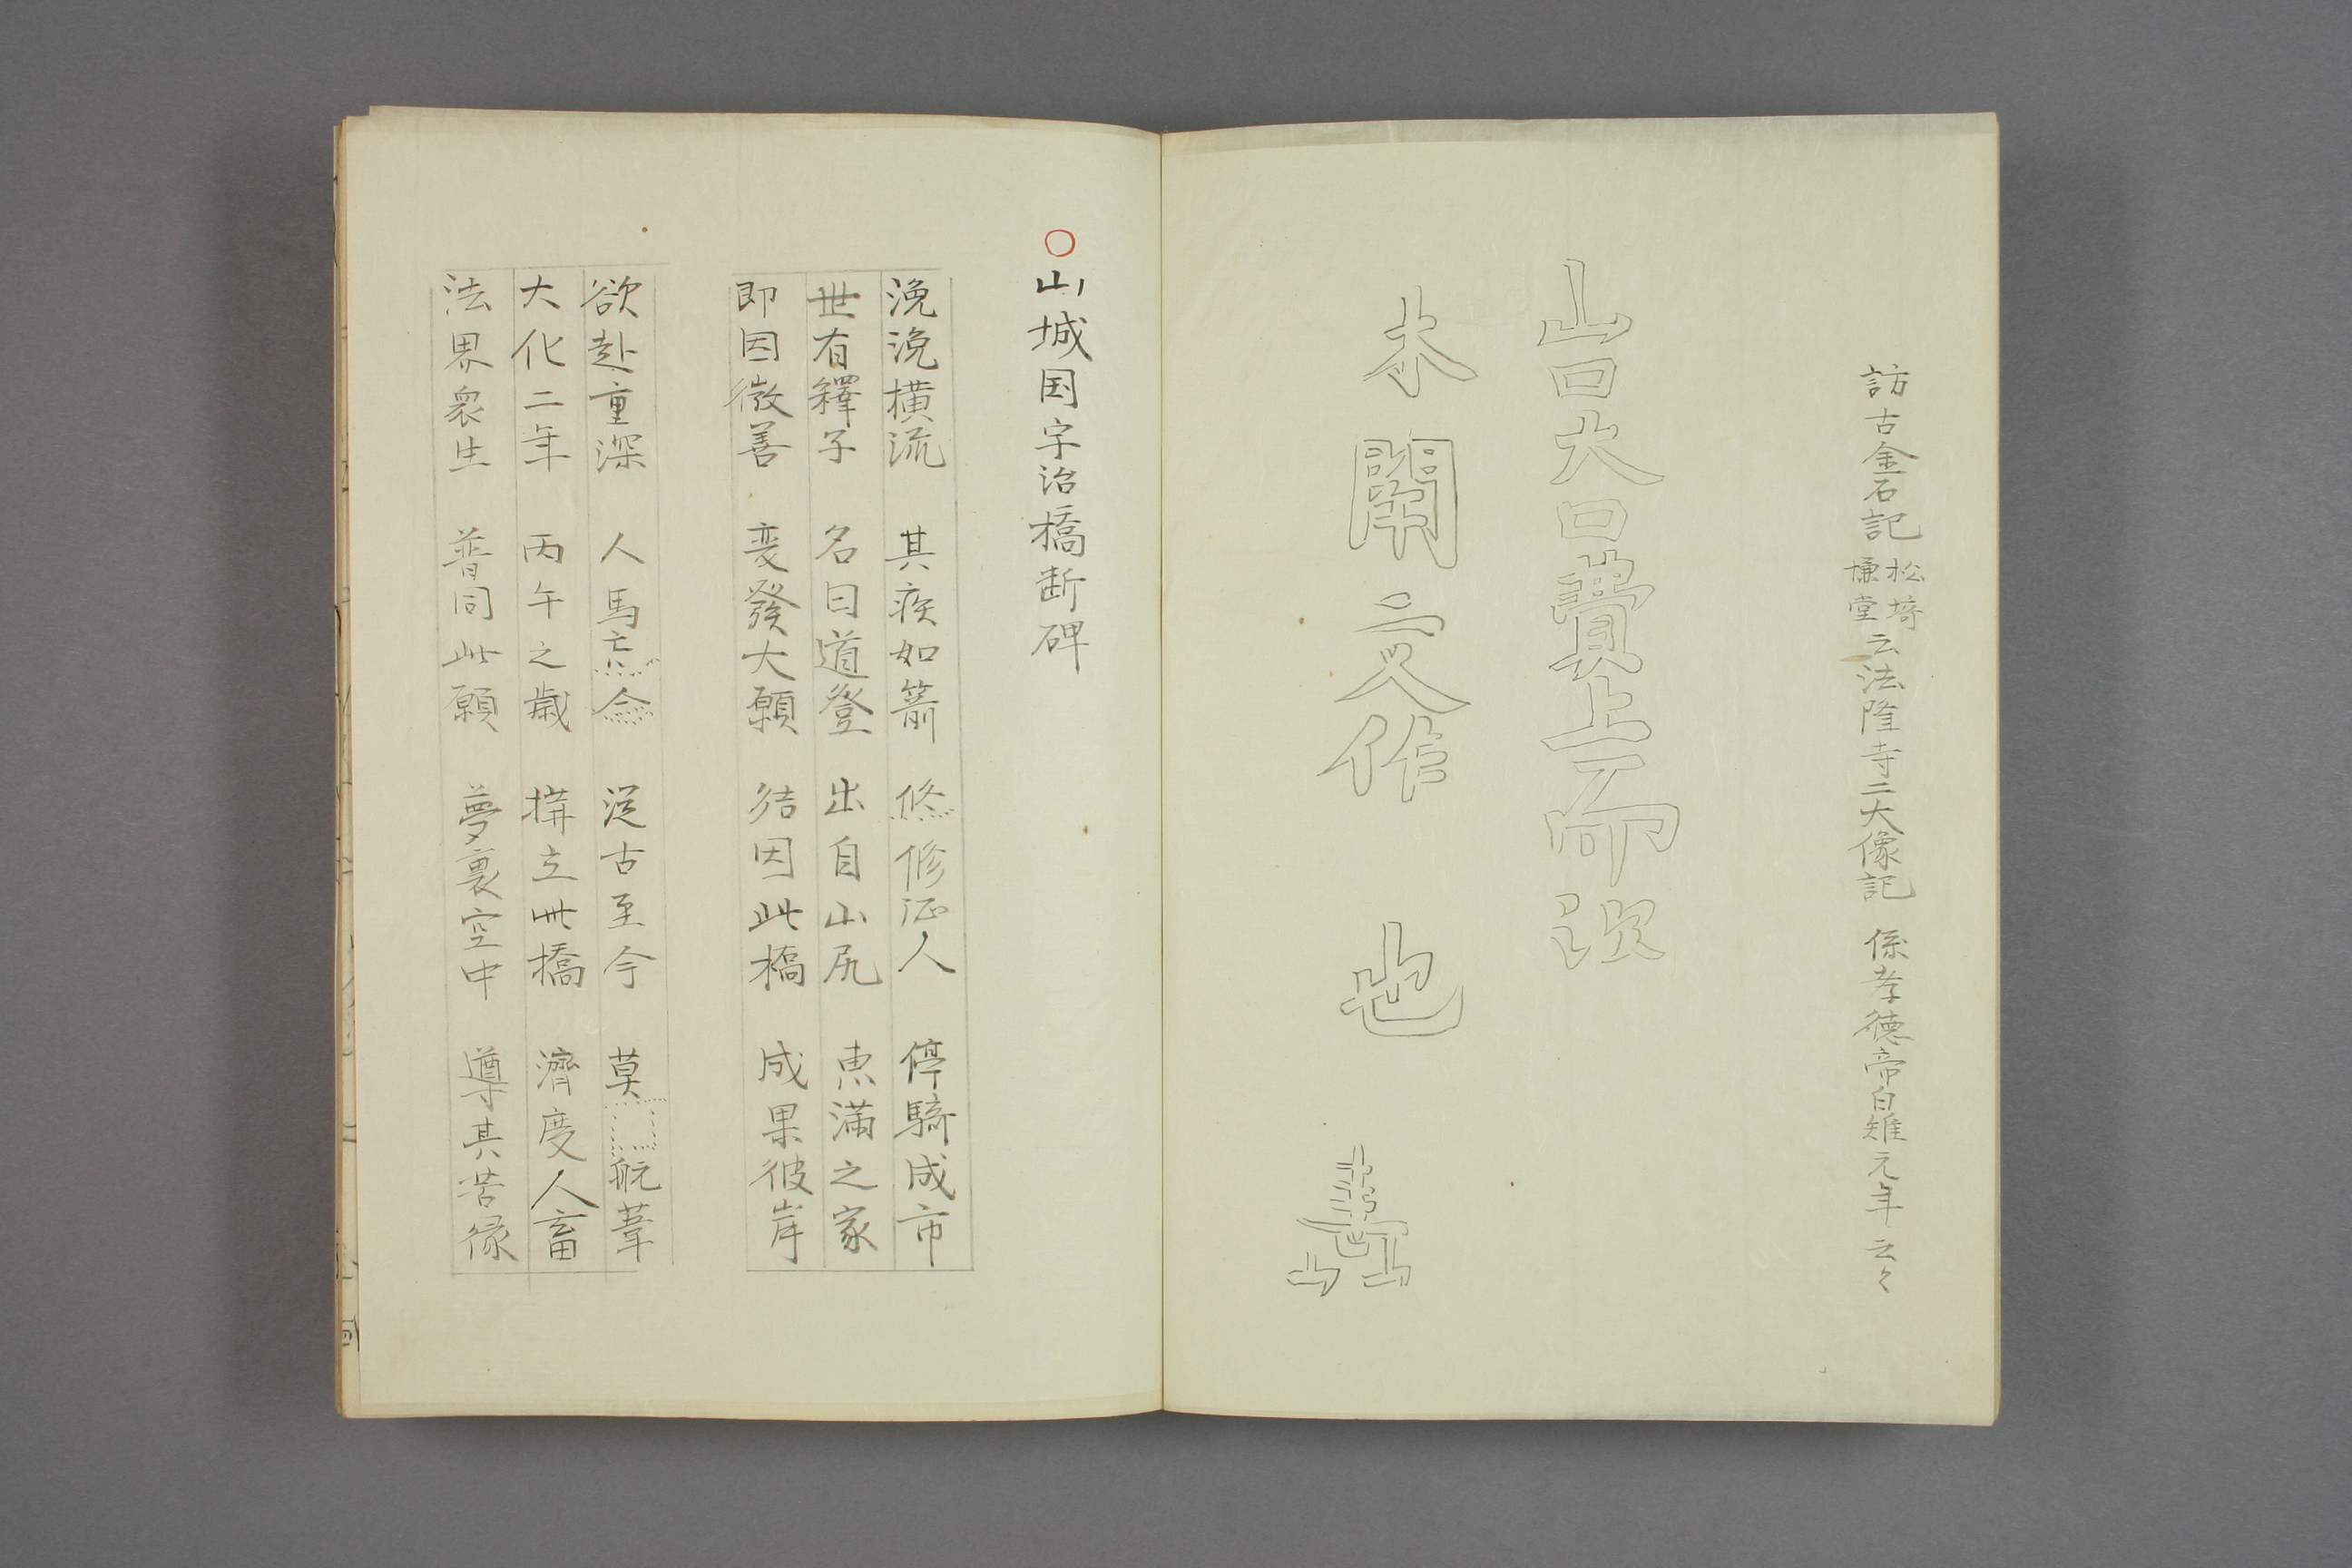 訪古金石記松埼慊堂云法隆寺二大像記 係孝徳帝白雉元年云々
山口大口費上而次
木閈二人作 也
○山城国宇治橋断碑
浼浼横流 其疾如箭 修修征人 停騎成市
世有釋子 名曰道登 出自山尻 恵満之家
即因微善 爰發大願 結因此橋 成果彼岸
欲赴重深 人馬亡命 従古至今 莫 航葦
大化二年 丙午之歳 搆立此橋 濟度人畜
法界衆生 普同此願 夢裏空中 導其苦縁